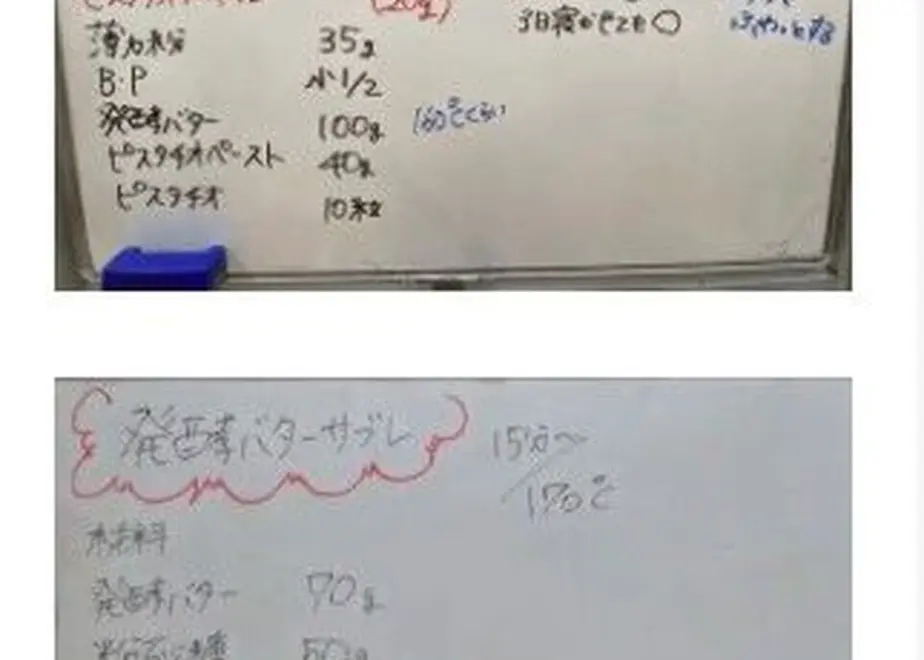 (20g)
薄力粉 35g
3日寝かせても○
B・P 小1/2
発酵バター 100g 160℃くらい
ピスタチオペースト 40g
ピスタチオ 10粒
発酵バターサブレ
15分〜
170℃
材料
発酵バター 70g